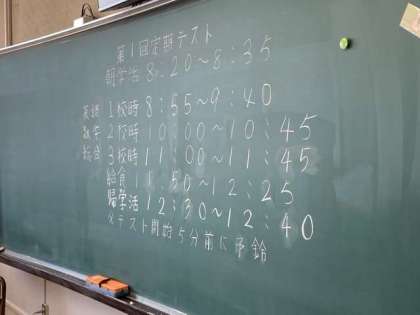 第1回定期テスト
朝学活 8:20~8:35
英語 1校時 8:55~9:40
数学 2校時 10:00~10:45
総合 3校時 11:00~11:45
給食 11:50~12:25
帰学活 12:30~12:40
※テスト開始5分前に予鈴